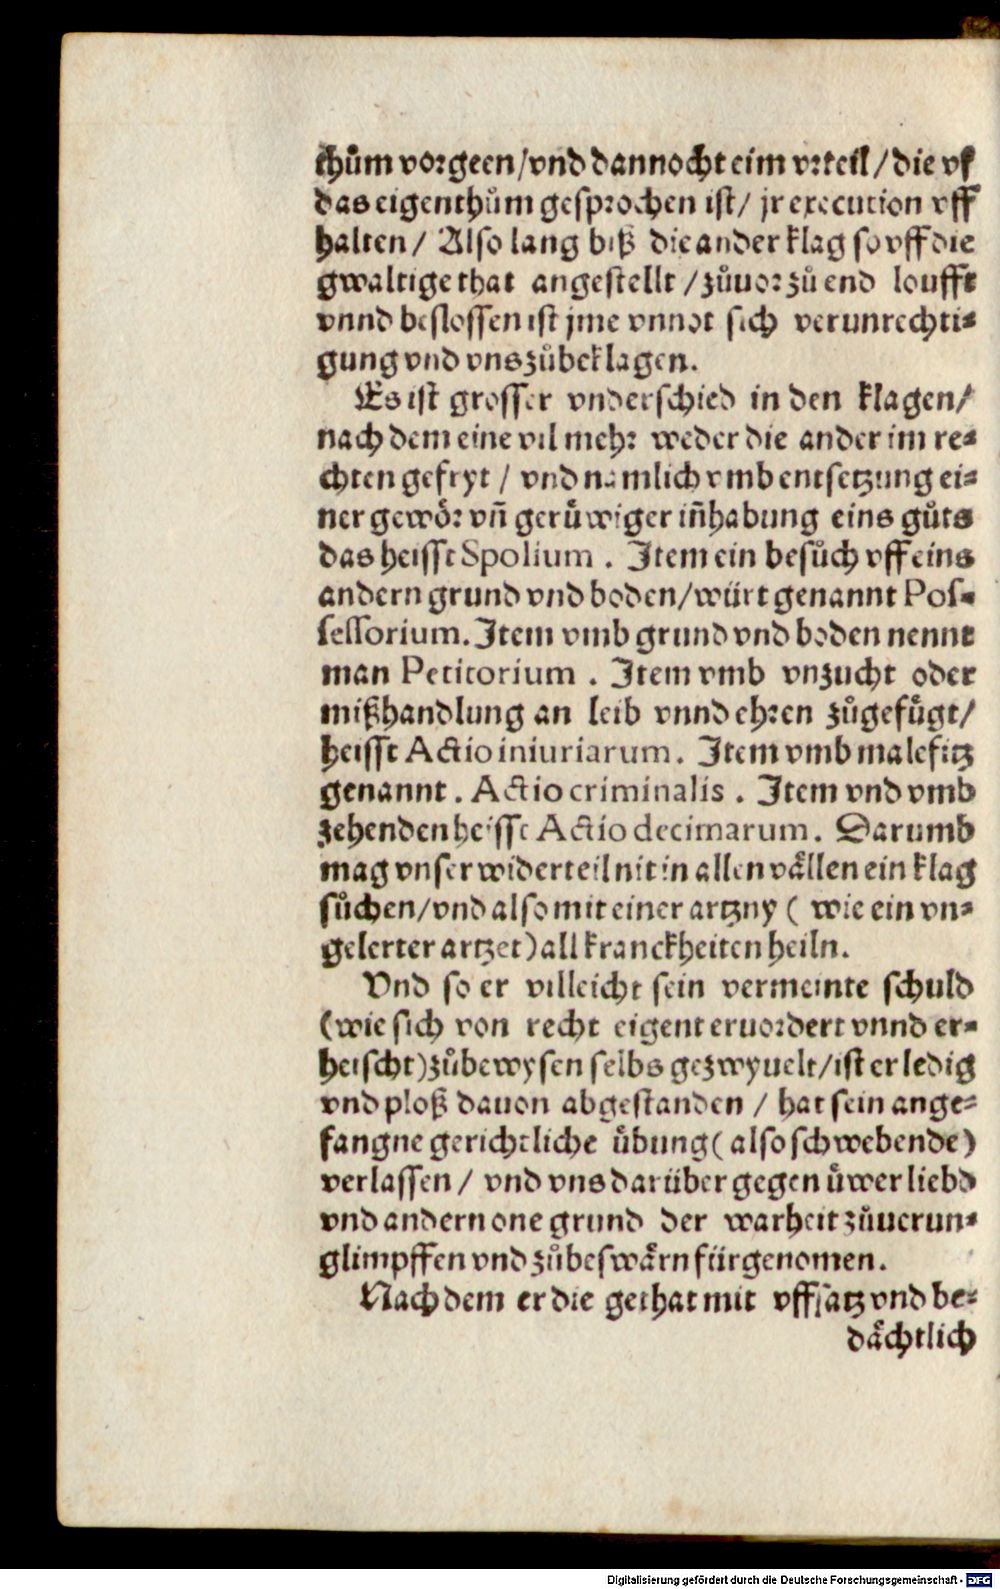 thům vorgeen/vnd dannocht eim vrteil/die vf
das eigenthům gesprochen ist/ jr execution vff
halten/ Also lang biß die ander klag so vff die
gwaltige that angestellt/zůuor zů end loufft
vnnd beslossen ist jme vnnot sich verunrechti-
gung vnd vns zůbeklagen.
Es ist grosser vnderschied in den klagen/
nach dem eine vil mehr weder die ander im re-
chten gefryt/ vnd namlich vmb entsetzung ei-
ner gewör vñ gerůwiger iñhabung eins gůts
das heisst Spolium. Item ein besůch vff eins
andern grund vnd boden/würt genannt Pos-
sessorium. Item vmb grund vnd boden nennt
man Petitorium. Item vmb vnzucht oder
mißhandlung an leib vnnd ehren zůgefůgt/
heisst Actio iniuriarum. Item vmb malefitz
genannt. Actio criminalis. Item vnd vmb
zehenden heisst Actio decimarum. Darumb
mag vnser widerteil nit in allen vällen ein klag
sůchen/vnd also mit einer artzny ( wie ein vn-
gelerter artzet) all kranckheiten heiln.
Vnd so er villeicht sein vermeinte schuld
(wie sich von recht eigent eruordert vnnd er-
heischt) zůbewysen selbs gezwyuelt/ist er ledig
vnd ploß dauon abgestanden / hat sein ange-
fangne gerichtliche ůbung( also schwebende)
verlassen/ vnd vns darüber gegen ůwer liebd
vnd andern one grund der warheit zůuerun-
glimpffen vnd zůbeswärn fürgenomen.
Nach dem er die gethat mit vffsatz vnd be-
dächtlich
Digitalisierung gefördert durch die Deutsche Forschungsgemeinschaft - DFG